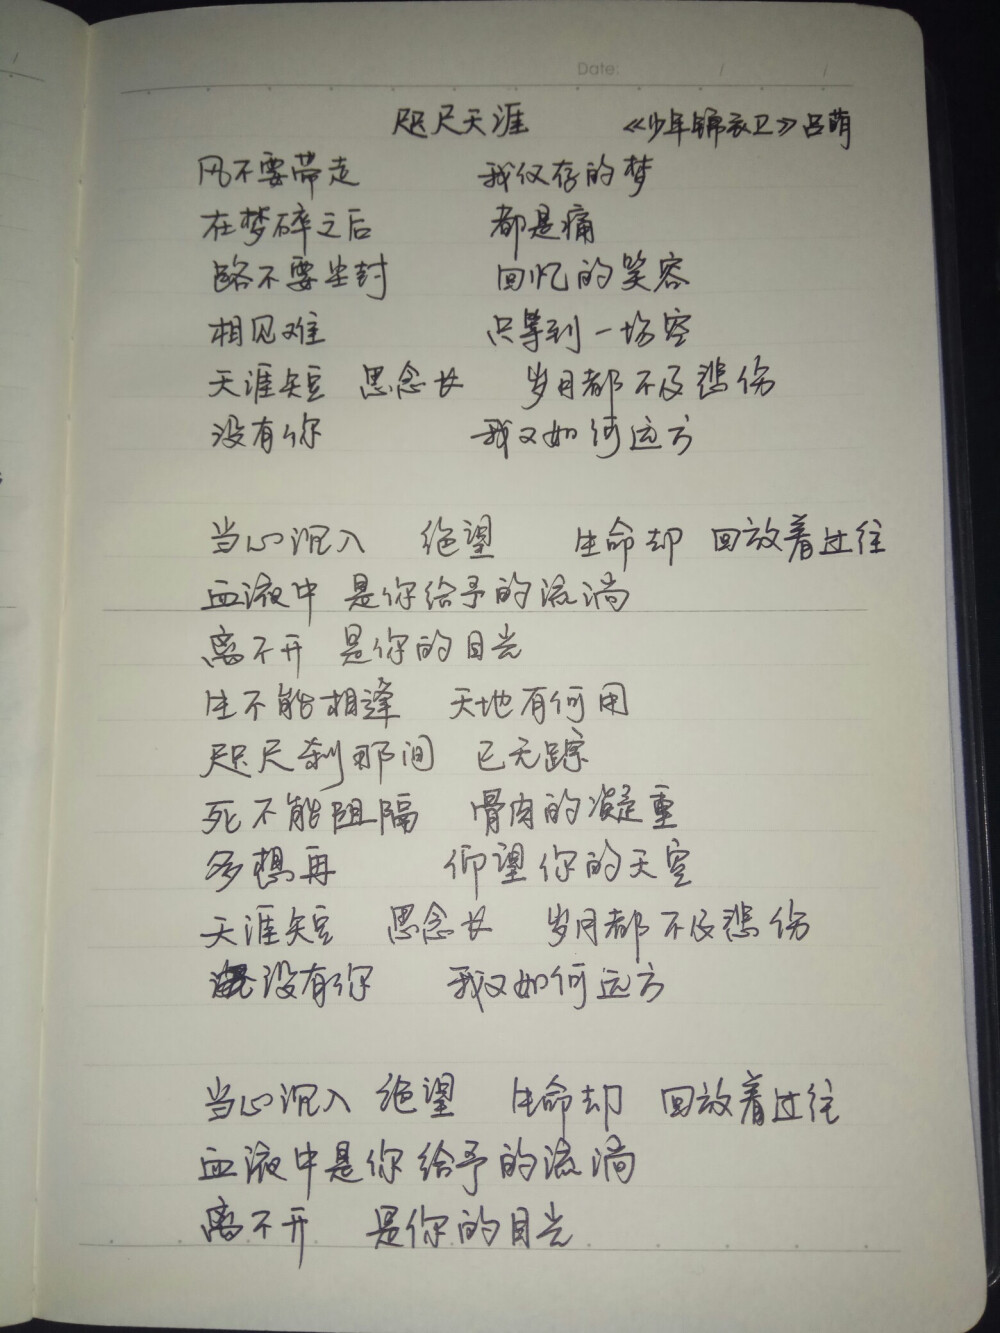 Date: / /
咫尺天涯 《少年锦衣卫》吕萌
风不要带走 我仅存的梦
在梦碎之后 都是痛
路不要尘封 回忆的笑容
相见难 只等到一场空
天涯短 思念长 岁月都不及悲伤
没有你 我又如何远方
当心沉入 绝望 生命却 回放着过往
血液中 是你给予的流淌
离不开 是你的目光
生不能相逢 天地有何用
咫尺刹那间 已无踪
死不能阻隔 骨肉的凝重
多想再 仰望你的天空
天涯短 思念长 岁月都不及悲伤
没有你 我又如何远方
当心沉入 绝望 生命却 回放着过往
血液中是你给予的流淌
离不开 是你的目光